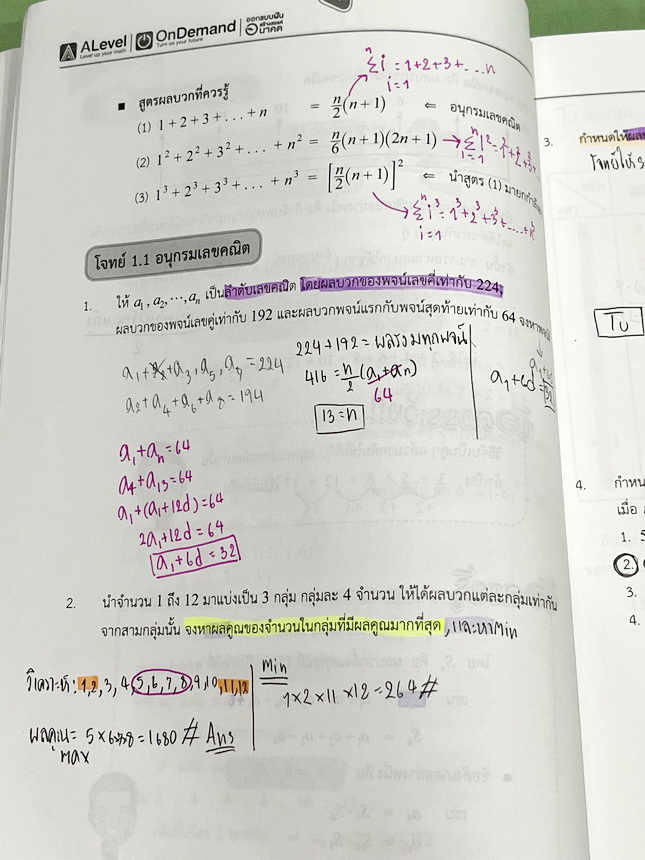 ALevel
Level up your math
OnDemand
Turn on your future
ออกแบบฝัน
สร้างสรรค์
อนาคต
■ สูตรผลบวกที่ควรรู้
n
Σi = 1+2+3+....n
i=1
(1) 1+2+3+...+n = n/2(n+1) ⇐ อนุกรมเลขคณิต
(2) 1²+2²+3²+...+n² = n/6(n+1)(2n+1)
(3) 1³+2³+3³+...+n³ = [n/2(n+1)]² ⇐ นำสูตร (1) มายกกำลัง
n
Σi³ = 1³+2³+3³+....+n³
i=1
โจทย์ 1.1 อนุกรมเลขคณิต
1. ให้ a₁, a₂, ..., aₙ เป็นลำดับเลขคณิต โดยผลบวกของพจน์เลขคี่เท่ากับ 224,
ผลบวกของพจน์เลขคู่เท่ากับ 192 และผลบวกพจน์แรกกับพจน์สุดท้ายเท่ากับ 64 จงหา
a₂+a₄+a₆+a₈ = 194
224+192 = ผลรวมทุกพจน์
416 = n/2 (a₁+aₙ)
64
13 = n
a₁+6d =
32
a₁+aₙ = 64
a₁+(a₁+12d) = 64
2a₁+12d = 64
a₁+6d = 32
2. นำจำนวน 1 ถึง 12 มาแบ่งเป็น 3 กลุ่ม กลุ่มละ 4 จำนวน ให้ได้ผลบวกแต่ละกลุ่มเท่ากัน
จากสามกลุ่มนั้น จงหาผลคูณของจำนวนในกลุ่มที่มีผลคูณมากที่สุด, และหาMin
วิเคราะห์: 1,2,3,4,5,6,7,8,9,10,11,12
ผลคูณ = 5×6×7×8 = 1680 # Ans
MAX
Min
1×2×11×12 = 264 #
3. กำหนดให้ผล
โจทย์ให้
4. กำหน
เมื่อ
1. 5
2.
3.
4.